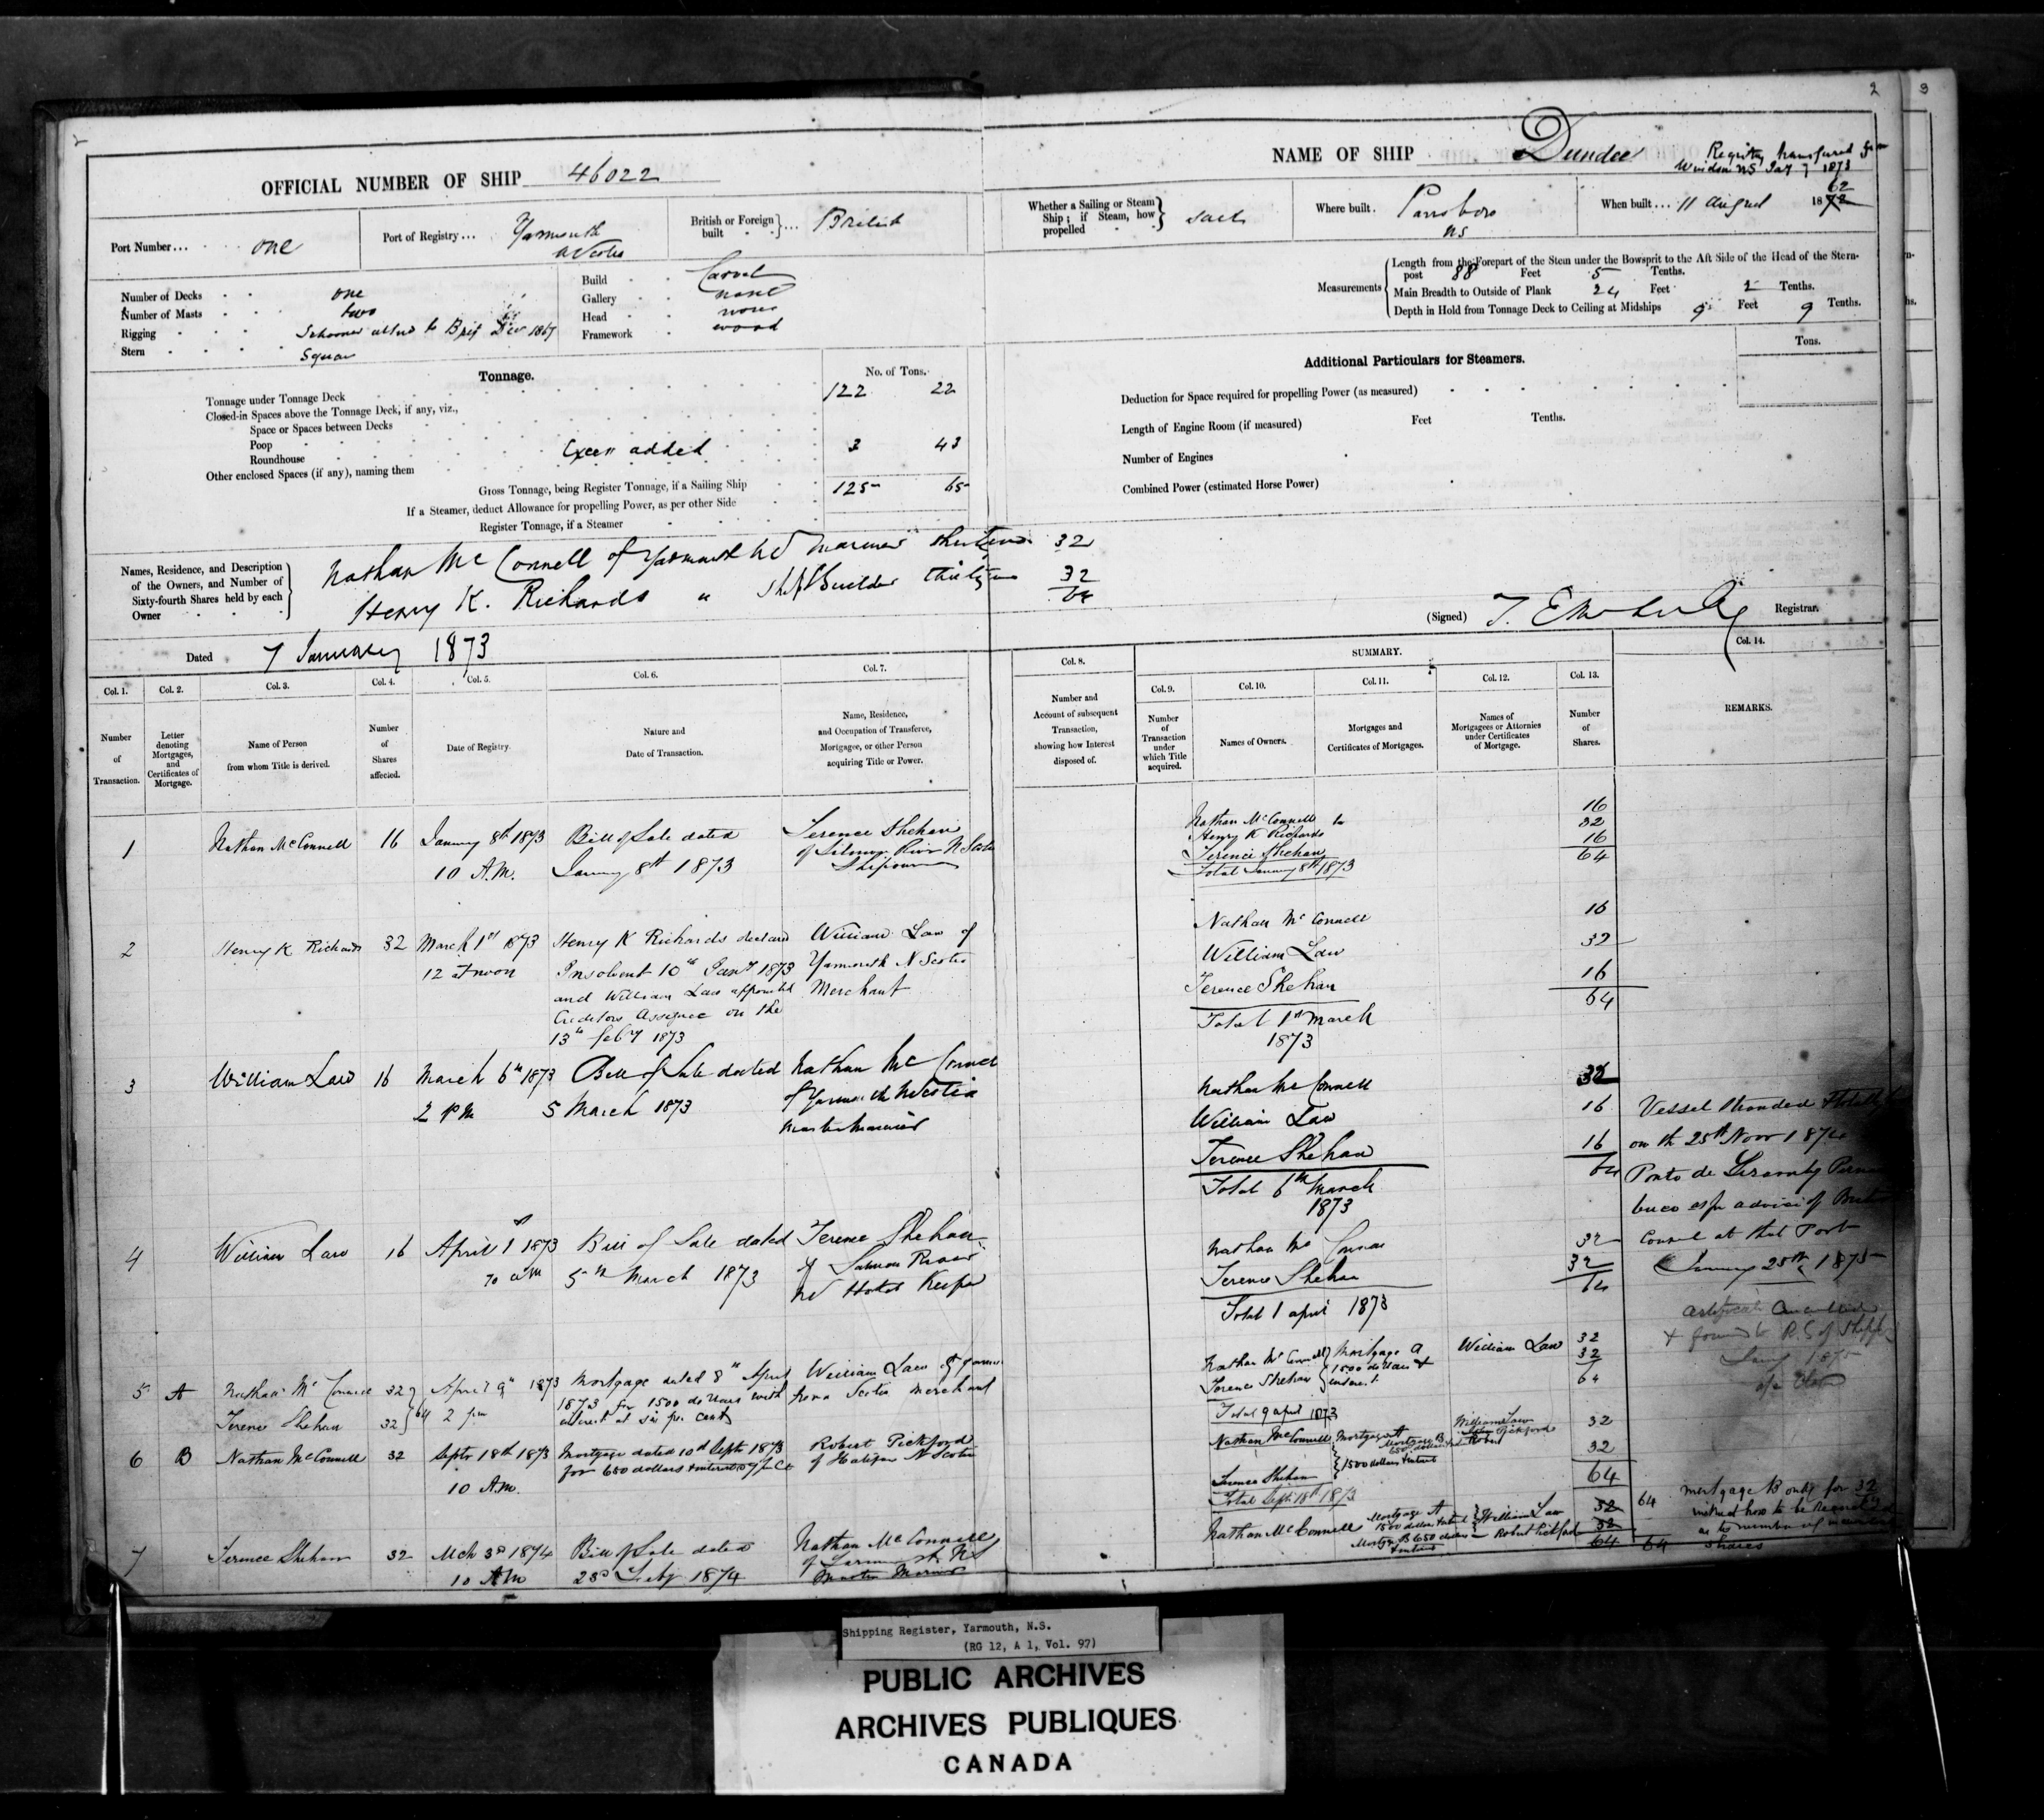 2
3
OFFICIAL NUMBER OF SHIP 46022
NAME OF SHIP Dundee
Registry transfered from
Windsor NS Jany 7 1873
Port Number... one
Port of Registry... Yarmouth
N Scotia
British or Foreign built ... British
Whether a Sailing or Steam Ship; if Steam, how propelled Sail
Where built. Parrsboro
NS
When built... 11 August 1872 62
Number of Decks one
Number of Masts two
Rigging Schooner altered to Brig Decr 1867
Stern Square
Build Carvel
Gallery none
Head none
Framework wood
Measurements
Length from the Forepart of the Stem under the Bowsprit to the Aft Side of the Head of the Stern-
post 88 Feet 5 Tenths.
Main Breadth to Outside of Plank 24 Feet 2 Tenths.
Depth in Hold from Tonnage Deck to Ceiling at Midships 9 Feet 9 Tenths.
Tonnage.
No. of Tons.
Tonnage under Tonnage Deck 122 22
Closed-in Spaces above the Tonnage Deck, if any, viz.,
Space or Spaces between Decks
Poop
Roundhouse Excess added 3 43
Other enclosed Spaces (if any), naming them
Gross Tonnage, being Register Tonnage, if a Sailing Ship 125 65
If a Steamer, deduct Allowance for propelling Power, as per other Side
Register Tonnage, if a Steamer
Additional Particulars for Steamers.
Tons.
Deduction for Space required for propelling Power (as measured)
Length of Engine Room (if measured) Feet Tenths.
Number of Engines
Combined Power (estimated Horse Power)
Names, Residence, and Description
of the Owners, and Number of
Sixty-fourth Shares held by each
Owner
Nathan McConnell of Yarmouth NS mariner thirty two 32
Henry K. Richards " Ship Builder thirty two 32
64
(Signed) Registrar.
Dated 7 January 1873
Col. 1.
Number
of
Transaction.
Col. 2.
Letter
denoting
Mortgages,
and
Certificates of
Mortgage.
Col. 3.
Name of Person
from whom Title is derived.
Col. 4.
Number
of
Shares
affected.
Col. 5.
Date of Registry.
Col. 6.
Nature and
Date of Transaction.
Col. 7.
Name, Residence,
and Occupation of Transferee,
Mortgagee, or other Person
acquiring Title or Power.
Col. 8.
Number and
Account of subsequent
Transaction,
showing how Interest
disposed of.
SUMMARY.
Col. 9.
Number
of
Transaction
under
which Title
acquired.
Col. 10.
Names of Owners.
Col. 11.
Mortgages and
Certificates of Mortgages.
Col. 12.
Names of
Mortgagees or Attornies
under Certificates
of Mortgage.
Col. 13.
Number
of
Shares.
Col. 14.
REMARKS.
1 Nathan McConnell 16 January 8th 1873
10 A.M.
Bill of Sale dated
January 8th 1873
Terence Shehan
of Salmon River N Scotia
Shipowner
Nathan McConnell 16
Henry K Richards 32
Terence Shehan 16
Total January 8th 1873 64
2 Henry K Richards 32 March 1st 1873
12 at noon
Henry K Richards declared
Insolvent 10th Jany 1873
and William Law appointed
Creditors Assignee on the
13th feby 1873
William Law of
Yarmouth N Scotia
Merchant
Nathan McConnell 16
William Law 32
Terence Shehan 16
64
Total 1st March
1873
3 William Law 16 March 6th 1873
2 PM
Bill of Sale dated
5 March 1873
Nathan McConnell
of Yarmouth N Scotia
Master Mariner
Nathan McConnell 32
William Law 16
Terence Shehan 16
64
Total 6th March
1873
4 William Law 16 April 1 1873
10 am
Bill of Sale dated
5th March 1873
Terence Shehan
of Salmon River
NS Hotel Keeper
Nathan McConnell 32
Terence Shehan 32
64
Total 1 april 1873
5 A Nathan McConnell 32
Terence Shehan 32 64
April 9th 1873
2 pm
Mortgage dated 8th April
1873 for 1500 dollars with
interest at six per cent
William Law of Yarmouth
Nova Scotia merchant
Nathan McConnell 32
Terence Shehan 32
Mortgage A
1500 dollars &
interest
William Law
64
Total 9 april 1873
6 B Nathan McConnell 32 Septr 18th 1873
10 A.M.
Mortgage dated 10th Septr 1873
for 650 dollars & interest
Robert Pickford
of Halifax N Scotia
Nathan McConnell Mortgage A William Law 32
Mortgage B
650 dollars Robert Pickford
Terence Shehan 1500 dollars & interest 32
64
Total Sept 18th 1873
7 Terence Shehan 32 Mch 3rd 1874
10 AM
Bill of Sale dated
23rd Feby 1874
Nathan McConnell
of Yarmouth NS
Master Mariner
Nathan McConnell
Mortgage A
1500 dollars & interest William Law 32 64
Mortge B 650 dollars Robert Pickford 32
& interest
64 64
Vessel Stranded & totally
on the 25th Novr 1874
Porto de
as per advice of British
Consul at that Port
January 25th 1875
Certificate Cancelled
& forwd to R.G of Shipp
Jany 1875
Mortgage B only for 32
as to number of
Shares
Shipping Register, Yarmouth, N.S.
(RG 12, A 1, Vol. 97)
PUBLIC ARCHIVES
ARCHIVES PUBLIQUES
CANADA